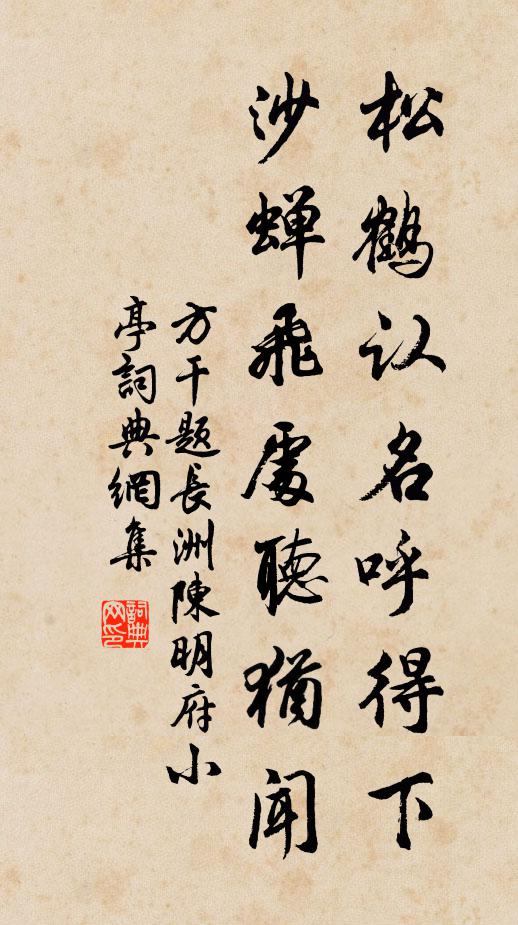 松鹤认名呼得下
沙蝉飛處聽猶聞
方干题長洲陳明府小
亭詞典網集
詞典网印